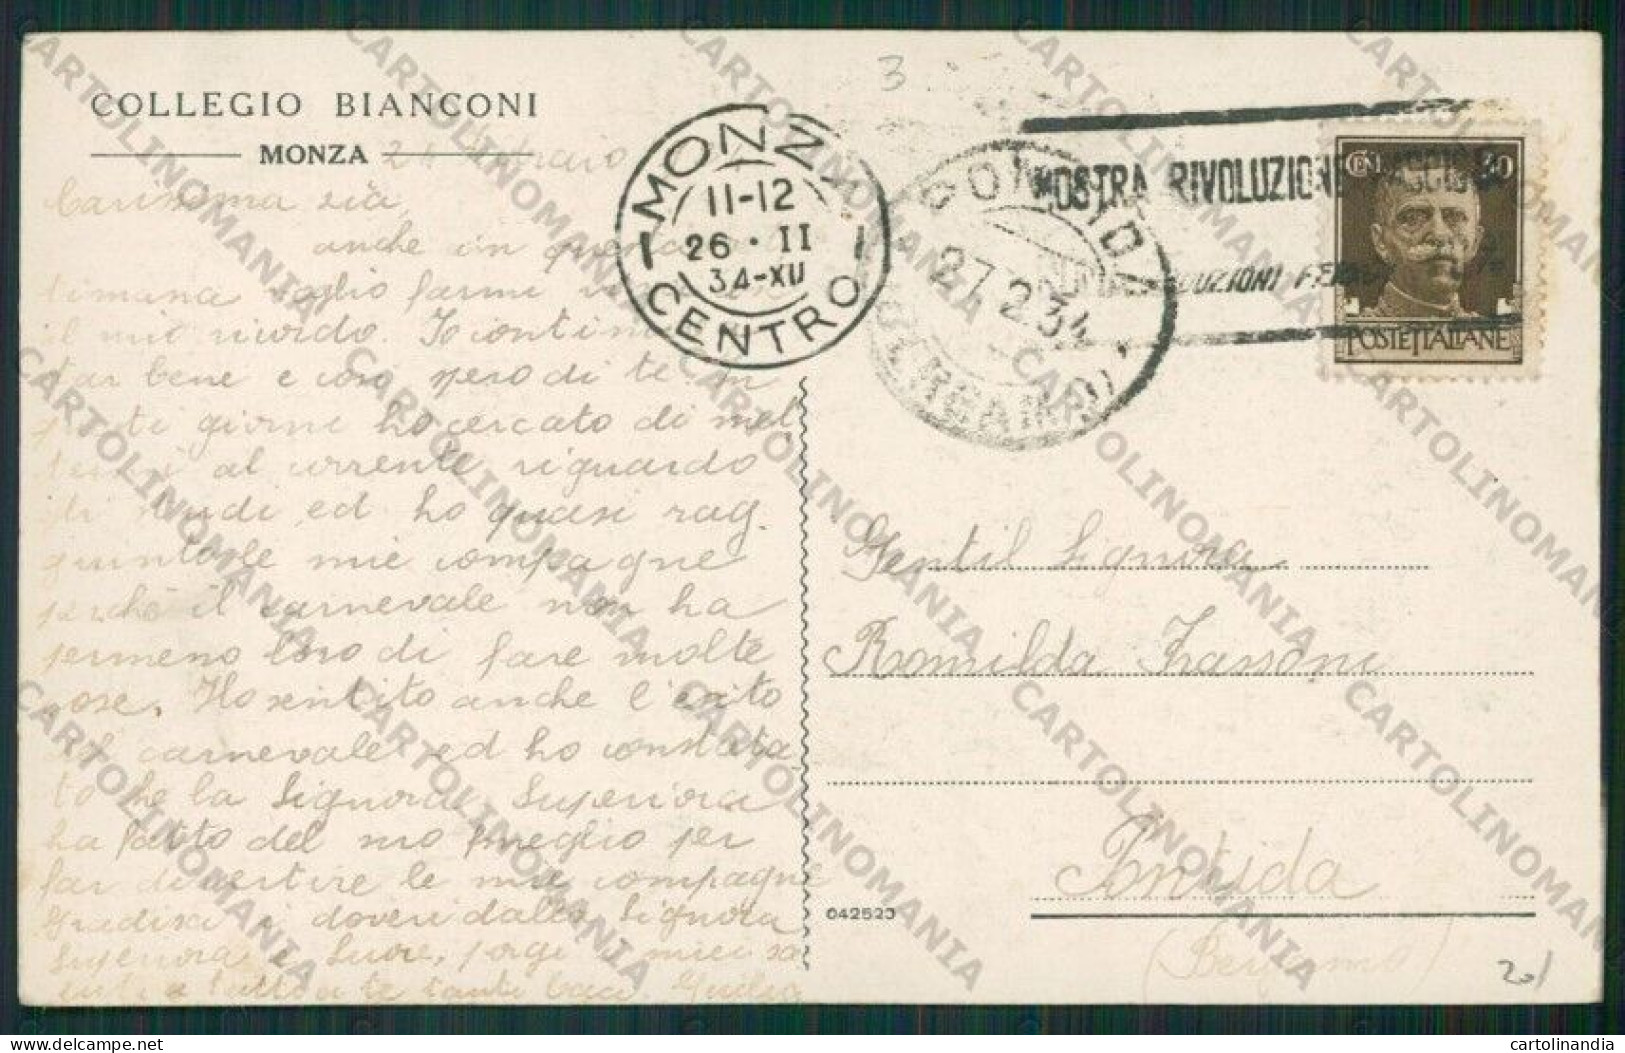 3
COLLEGIO BIANCONI
MONZA
Carissima zia,
anche in
timana voglio farmi
il mio ricordo. Io
star bene e così spero di te. In
ti giorni ho cercato di met
al corrente riguardo
ed ho quasi rag-
giunto le mie compagne
perchè il carnevale non ha
permesso loro di fare molte
cose. Ho sentito anche l'esito
del carnevale ed ho constata-
to che la Signora Superiora
ha fatto del suo meglio per
far divertire le mie compagne
Gradisci i doveri dalla Signora
Superiora e Suore, porgi i miei sa
luti a tutti a te tanti baci.
MONZA CENTRO
11-12
26 · II
34-XII
PONTIDA
27.2.34
BERGAMO
MOSTRA RIVOLUZIONE FASCISTA
RIDUZIONI FERROV
CEN. 30
POSTE ITALIANE
Gentil Signora
Romilda
Pontida
(Bergamo)
042523
20/
CARTOLINOMANIA
delcampe.net
cartolinandia